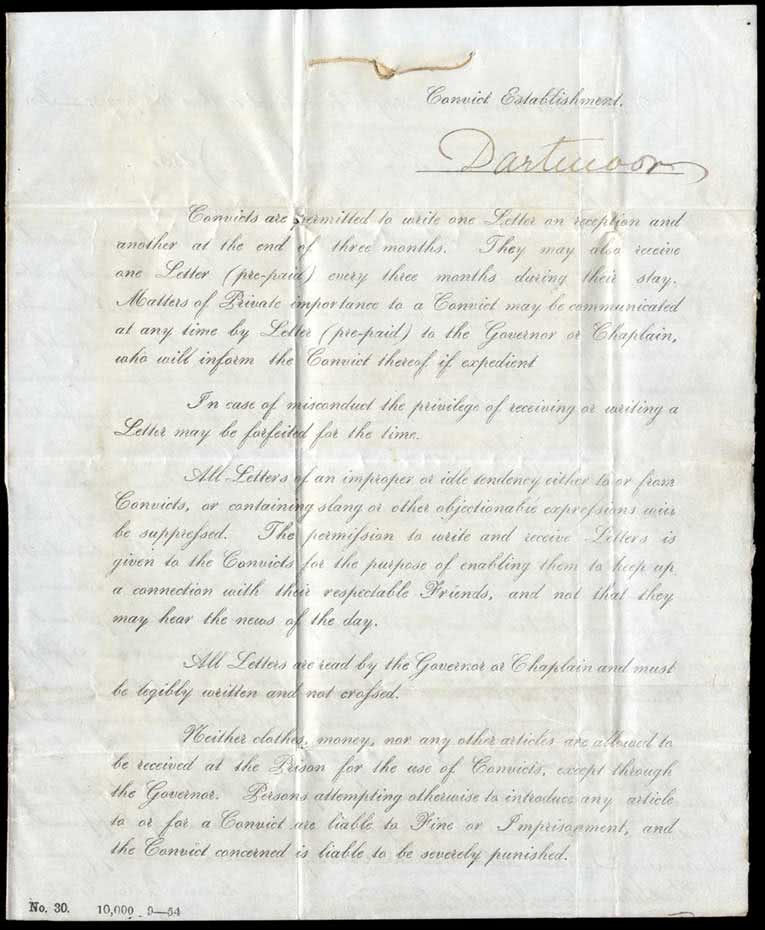 Convict Establishment.
Dartmoor
Convicts are permitted to write one Letter on reception and
another at the end of three months. They may also receive
one Letter (pre-paid) every three months during their stay.
Matters of Private importance to a Convict may be communicated
at any time by Letter (pre-paid) to the Governor or Chaplain,
who will inform the Convict thereof if expedient
In case of misconduct the privilege of receiving or writing a
Letter may be forfeited for the time.
All Letters of an improper or idle tendency either to or from
Convicts, or containing slang or other objectionable expreſsions will
be suppreſsed. The permission to write and receive Letters is
given to the Convicts for the purpose of enabling them to keep up
a connection with their respectable Friends, and not that they
may hear the news of the day.
All Letters are read by the Governor or Chaplain and must
be legibly written and not croſsed.
Neither clothes, money, nor any other articles are allowed to
be received at the Prison for the use of Convicts, except through
the Governor. Persons attempting otherwise to introduce any article
to or for a Convict are liable to Fine or Imprisonment, and
the Convict concerned is liable to be severely punished.
No. 30. 10,000 9—54